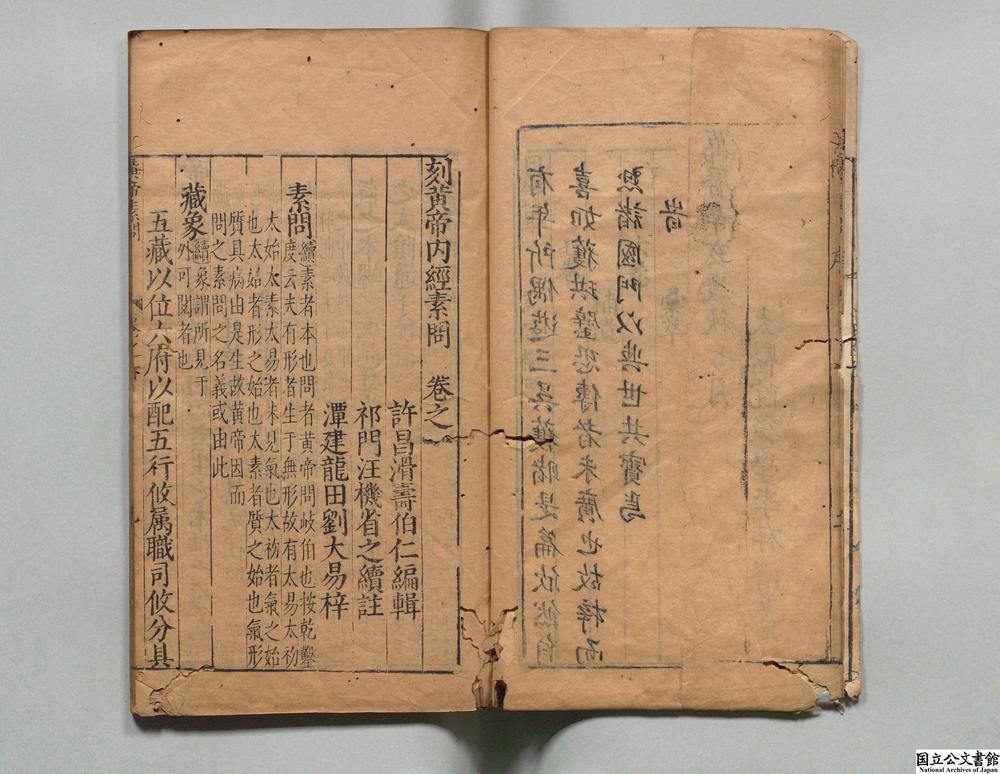 有年所偶遊三吳獲睹是篇欣然自
喜如獲珙璧恐傳者未廣也故梓而
懸諸國門以與世共寶焉
旹
秋七月
刻黃帝內經素問　卷之一
許昌滑壽伯仁編輯
祁門汪機省之續註
潭建龍田劉大易梓
素問
續素者本也問者黃帝問岐伯也按乾鑿
度云夫有形者生于無形故有太易太初
太始太素太易者未見氣也太初者氣之始
也太始者形之始也太素者質之始也氣形
質具病由是生故黃帝因而
問之素問之名義或由此
藏象
續象謂所見于
外可閱者也
五藏以位六府以配五行攸属職司攸分具
国立公文書館
National Archives of Japan